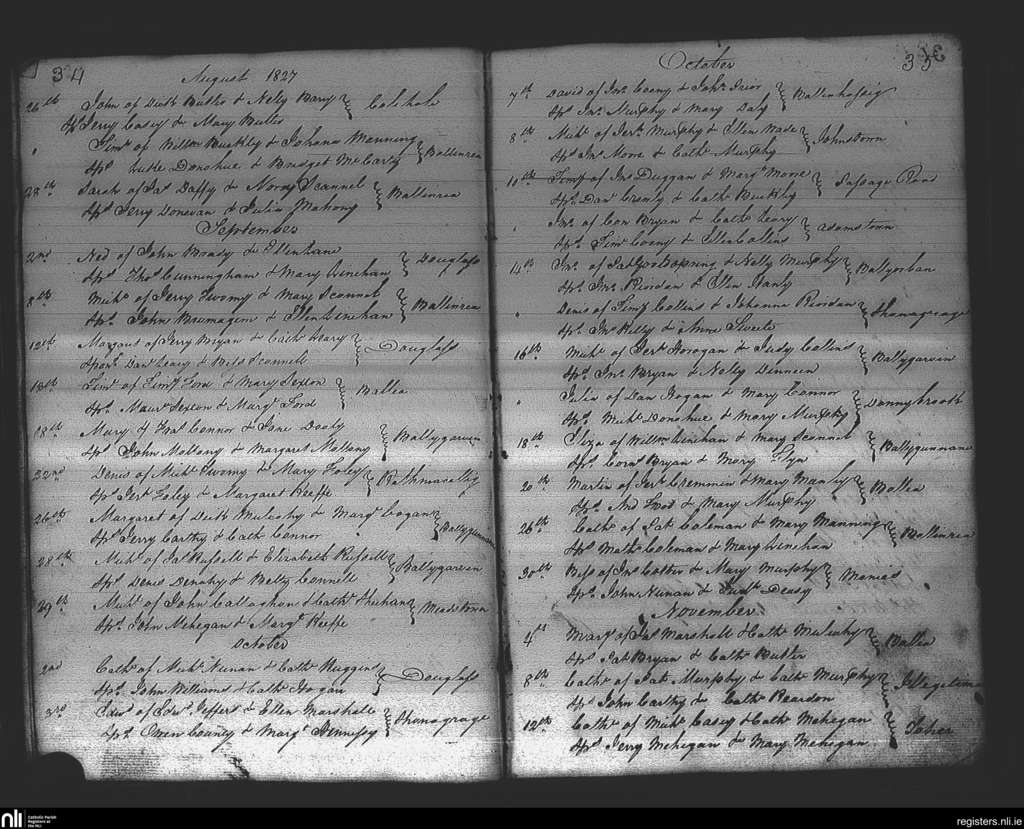 34
August 1827
26th John of Butler & Nelly Bary
Sps Jerry Casey & Mary Butler
Timy of Willm Buckly & Johana Manning Ballinrea
Sps Donohue & Bridget McCarty
28th Sarah of Pat Daffy & Nory Scannel Ballinrea
Sps Jerry Donovan & Julia Mahony
September
2nd Ned of John Brady & Douglass
Sps Thos Cunningham & Mary Linehan
8th Michl of Jerry Twomy & Mary Scannel Ballinrea
Sps John & Ellen Linehan
12th Margaret of Jerry Bryan & Cath Leary Douglass
Spons Danl Leary & Bess Scannell
18th Timy of Timy Ford & Mary Sexton Ballea
Sps Maur Sexton & Margt Ford
18th Mary of Connor & Jane Dooly Ballygarvin
Sps John Mallony & Margaret Mallony
22nd Denis of Michl Twomy & Mary Foley
Sps Jerh Foley & Margaret Keeffe
26th Margaret of Mulcahy & Margt Cogan
Sps Jerry Carthy & Cath Connor
28th Michl of Jas Russell & Elizabeth Russell Ballygarvin
Sps Denis Denahy & Betty Connell
29th Michl of John Callaghan & Cath Meadstown
Sps John Mehegan & Margt Keeffe
October
2nd Cath of Michl Nunan & Cath Huggins Douglass
Sps John Williams & Cath Hogan
3rd Edwd of Edwd Jeffers & Ellen Marshall Shanagrage
Sps Owen & Margt Hennessy
October
35
7th David of Jno Coony & Prior Ballenhassig
Sps Jno Murphy & Mary Daly
8th Michl of Jerh Murphy & Ellen Wade Johnstown
Sps Jno Moore & Cath Murphy
10th Timy of Jno Duggan & Margt Moore Passage Road
Sps Danl Cronly & Cath Buckly
Jno of Con Bryan & Cath Leary adamstown
Sps Timy Coony & Ellen Collins
14th Jno of Pat & Nelly Murphy
Sps Jno Riordan & Ellen Manly
Denis of Timy Collins & Johanna Riordan Shanagrage
Sps Jno Kelly & Anne Sweete
16th Michl of Jerh Horogan & Judy Collins Ballygarvin
Sps Jno Bryan & Nelly Dinneen
Julia of Dan Hogan & Mary Connor Dunnybrook
Sps Michl Donohue & Mary Murphy
18th Eliza of Willm Linehan & Mary Scannel
Sps Corns Bryan & Mary Flyn
20th Martin of Jerh Cremmin & Mary Manly Ballea
Sps Ned Ford & Mary Murphy
26th Cath of Pat Coleman & Mary Manning Ballinrea
Sps Mathw Coleman & Mary Linehan
30th Bess of Jno Cotter & Mary Murphy Monees
Sps John Nunan & Deasy
November
4th Margt of Pat Marshall & Cath Mulcahy Ballea
Sps Pat Bryan & Cath Butler
8th Cath of Pat Murphy & Cath Murphy
Sps John Carthy & Cath Reardon
12th Cath of Michl Casey & Cath Mehegan Toher
Sps Jerry Mehegan & Mary Mehegan
nli
Catholic Parish
Registers at
the NLI
registers.nli.ie